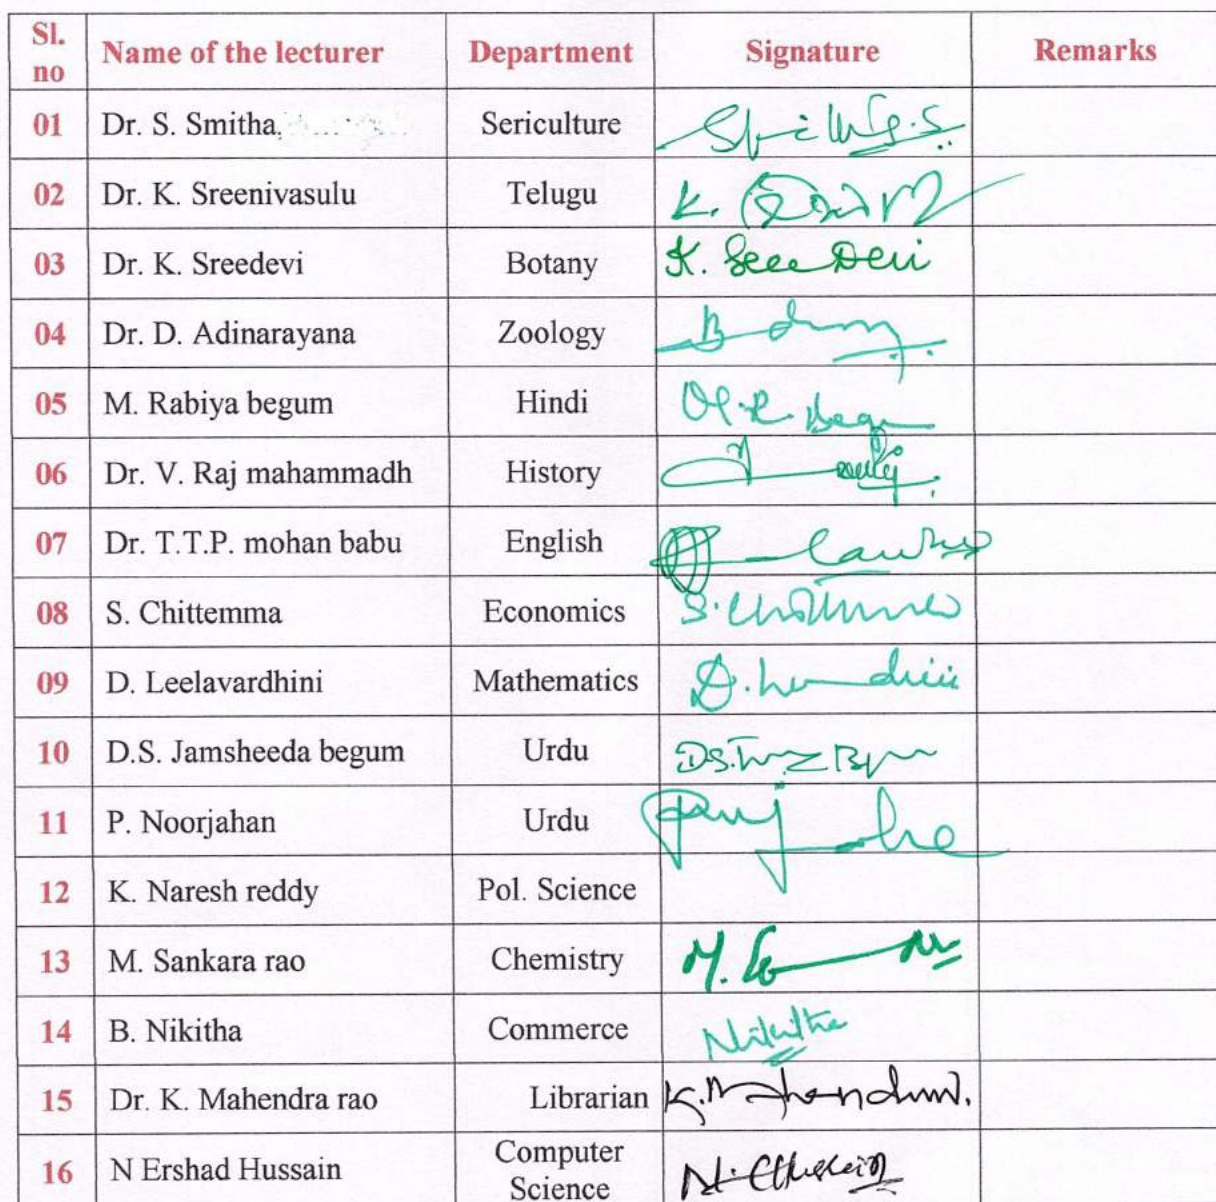 Sl. no Name of the lecturer Department Signature Remarks
01 Dr. S. Smitha, Sericulture
02 Dr. K. Sreenivasulu Telugu K.
03 Dr. K. Sreedevi Botany K. Sree Devi
04 Dr. D. Adinarayana Zoology
05 M. Rabiya begum Hindi
06 Dr. V. Raj mahammadh History
07 Dr. T.T.P. mohan babu English
08 S. Chittemma Economics
09 D. Leelavardhini Mathematics
10 D.S. Jamsheeda begum Urdu
11 P. Noorjahan Urdu
12 K. Naresh reddy Pol. Science
13 M. Sankara rao Chemistry
14 B. Nikitha Commerce Nikitha
15 Dr. K. Mahendra rao Librarian
16 N Ershad Hussain Computer Science